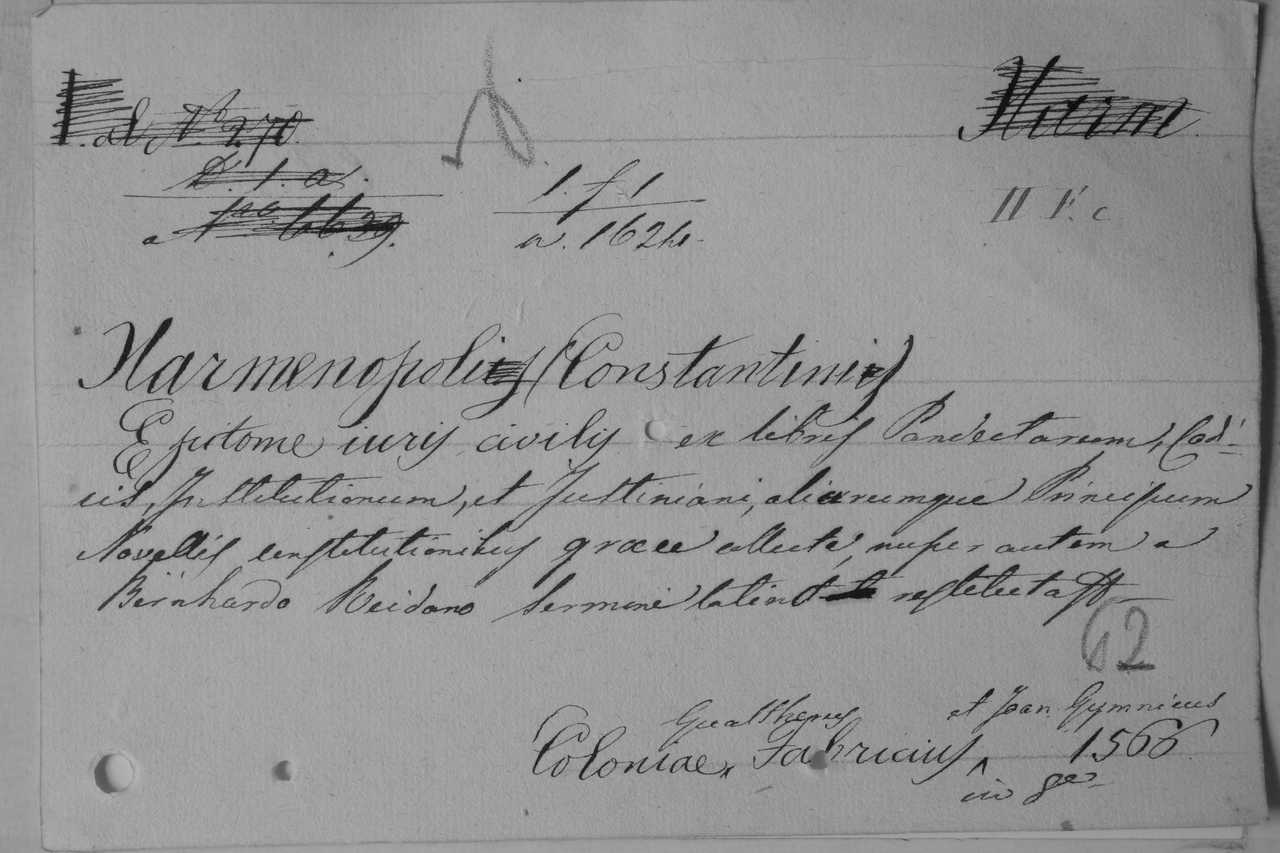 ad No 270.
D. 1. a.
No. 6639.
1. f. 1
II F. c
Harmenopoli (Constantini)
Epitome iuris civilis ex libris Pandectarum, Cod-
icis, Institutionum, et Justiniani, aliarumque Principum
Novellis constitutionibus graece collecta, nuper autem a
Bernhardo Reidano sermone latino
62
Gualtherus et Joan. Gymnicus
Coloniae, Fabricius 1566
in 8vo